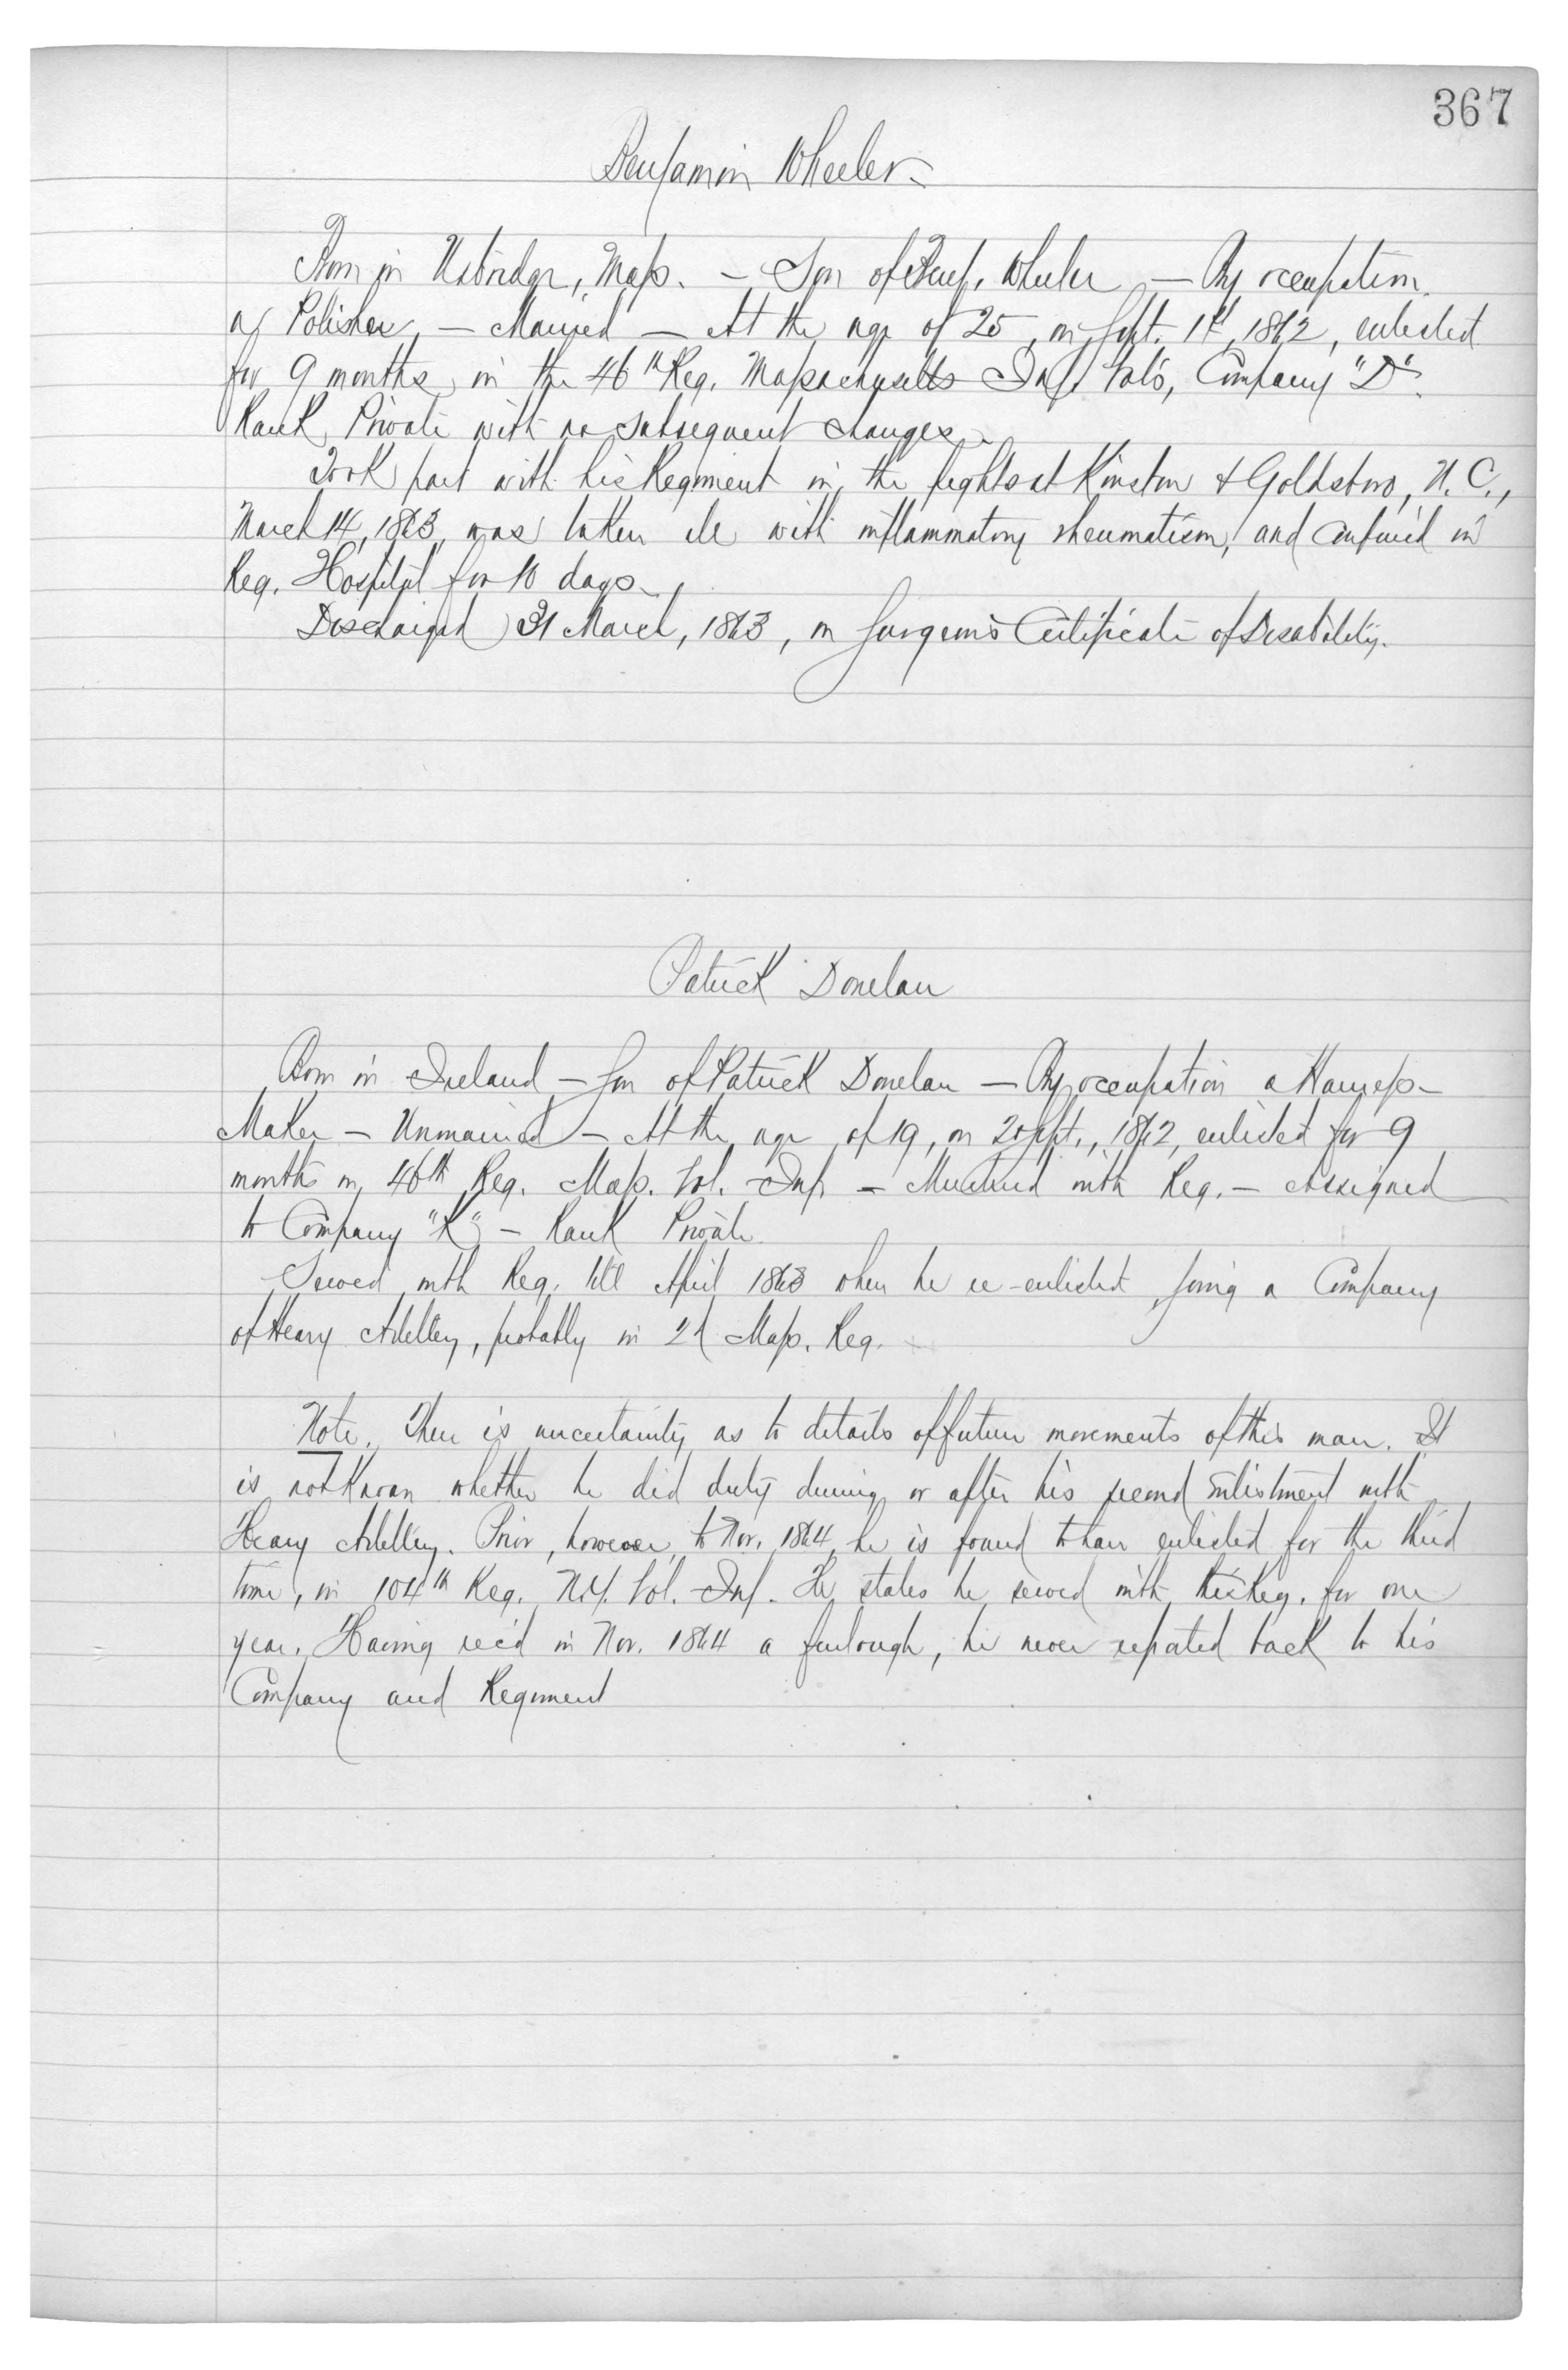 367
Benjamin Wheeler.
Born in Uxbridge, Mass. – Son of Benj. Wheeler – By occupation
a Polisher, – Married – At the age of 25, on Sept. 1st, 1862, enlisted
for 9 months, in the 46th Reg. Massachusetts Inf. Vols, Company "D".
Rank Private with no subsequent changes.
Took part with his Regiment in the fights at Kinston & Goldsboro, N.C.,
March 14, 1863, was taken ill with inflammatory rheumatism, and confined in
Reg. Hospital for 10 days.
Discharged 31 March, 1863, on Surgeon's Certificate of Disability.
Patrick Donelan
Born in Ireland – Son of Patrick Donelan – By occupation a Harness-
Maker – Unmarried – At the age of 19, on 2 Sept., 1862, enlisted for 9
months in 46th Reg. Mass. Vol. Inf. – Mustered with Reg. – Assigned
to Company "K" – Rank Private.
Served with Reg. till April 1863 when he re-enlisted, joining a Company
of Heavy Artillery, probably in 2d Mass. Reg.
Note. There is uncertainty as to details of future movements of this man. It
is not known whether he did duty during or after his second enlistment with
Heavy Artillery. Prior, however, to Nov. 1864, he is found to have enlisted for the third
time, in 104th Reg. N.Y. Vol. Inf. He states he served with this Reg. for one
year. Having rec'd in Nov. 1864 a furlough, he never reported back to his
Company and Regiment